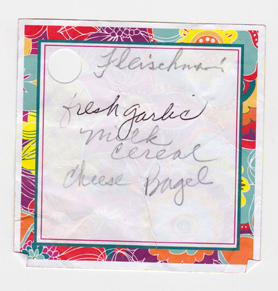 Fleischman's
fresh garlic
milk
cereal
cheese Bagel